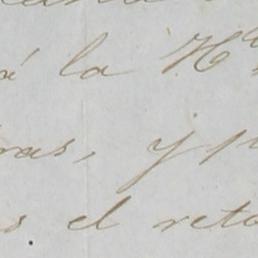 á la H
ras, y p
s el reto